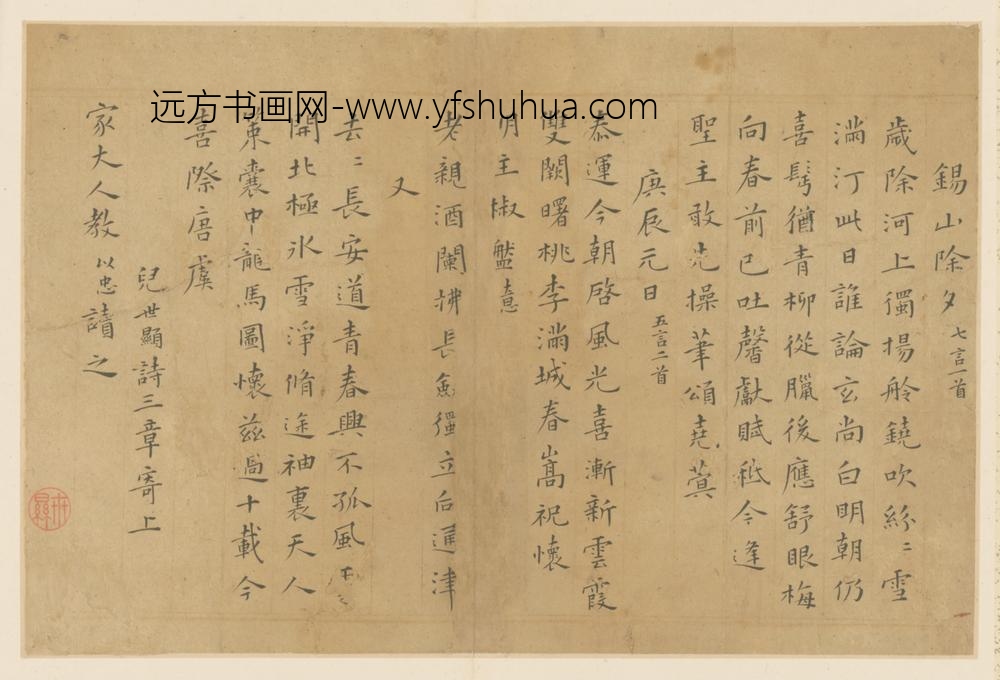 远方书画网-www.yfshuhua.com
錫山除夕 七言一首
歲除河上獨揚舲鐃吹紛〻雪
滿汀此日誰論玄尚白明朝仍
喜鬂猶青柳從臘後應舒眼梅
向春前已吐馨獻賦秪今逢
聖主敢先操筆頌堯蓂
庚辰元日 五言二首
泰運今朝啓風光喜漸新雲霞
雙闕曙桃李滿城春嵩祝懷
明主椒盤意
老親酒闌拂長獨立后通津
又
去〻長安道青春興不孤風
開北極氷雪淨脩途袖裏天人
策囊中龍馬圖懷茲過十載今
喜際唐虞
兒世顯詩三章寄上
家大人教 以忠讀之